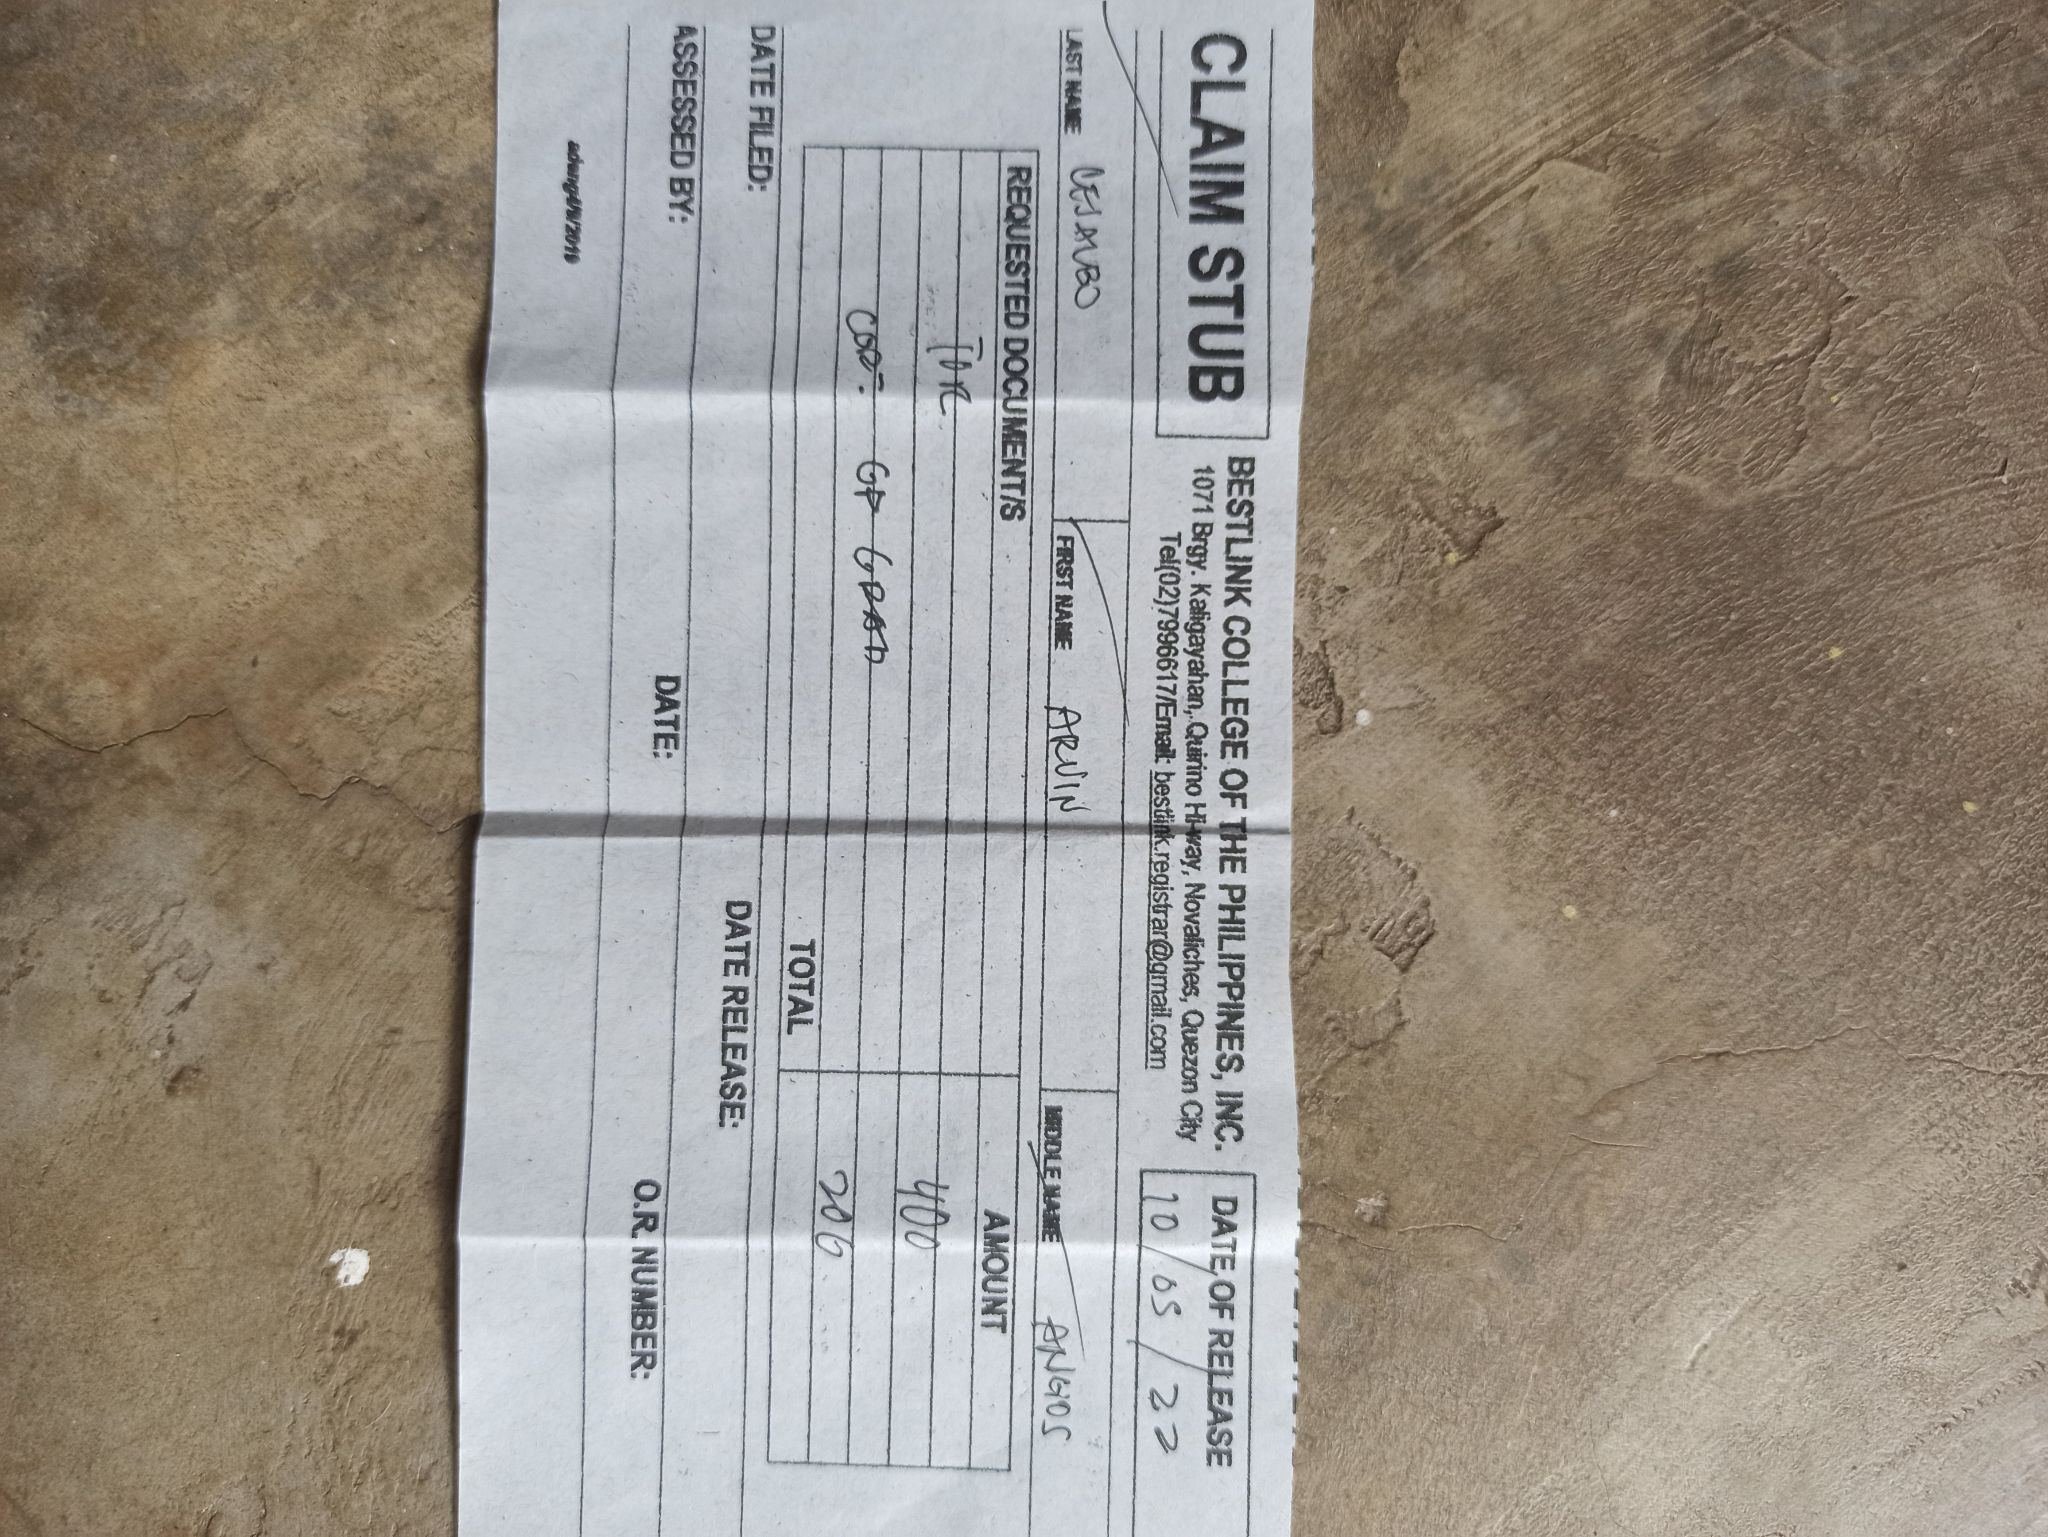 CLAIM STUB
BESTLINK COLLEGE OF THE PHILIPPINES, INC.
1071 Brgy. Kaligayahan, Quirino Hi-way, Novaliches, Quezon City
Tel(02)7996617/Email: bestlink.registrar@gmail.com
DATE OF RELEASE
10/05/22
LAST NAME FIRST NAME ARVIN MIDDLE NAME ANGIOS
REQUESTED DOCUMENT/S AMOUNT
TOR 400
CERT. OF GRAD 200
TOTAL
DATE FILED: DATE RELEASE:
ASSESSED BY: DATE: O.R. NUMBER: